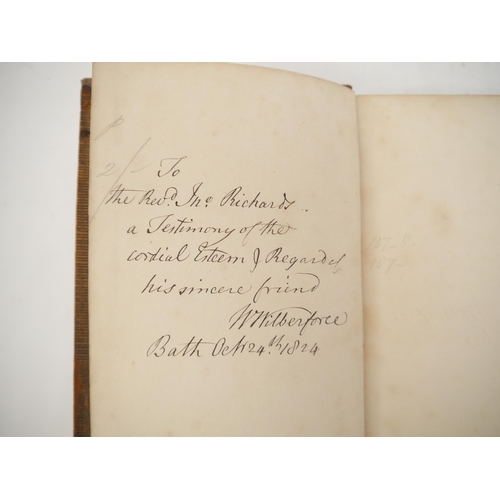 2/-
To
the Revd. Jno Richards..
a Testimony of the
cordial Esteem & Regard of
his sincere friend
W Wilberforce
Bath Octr 24.th 1824